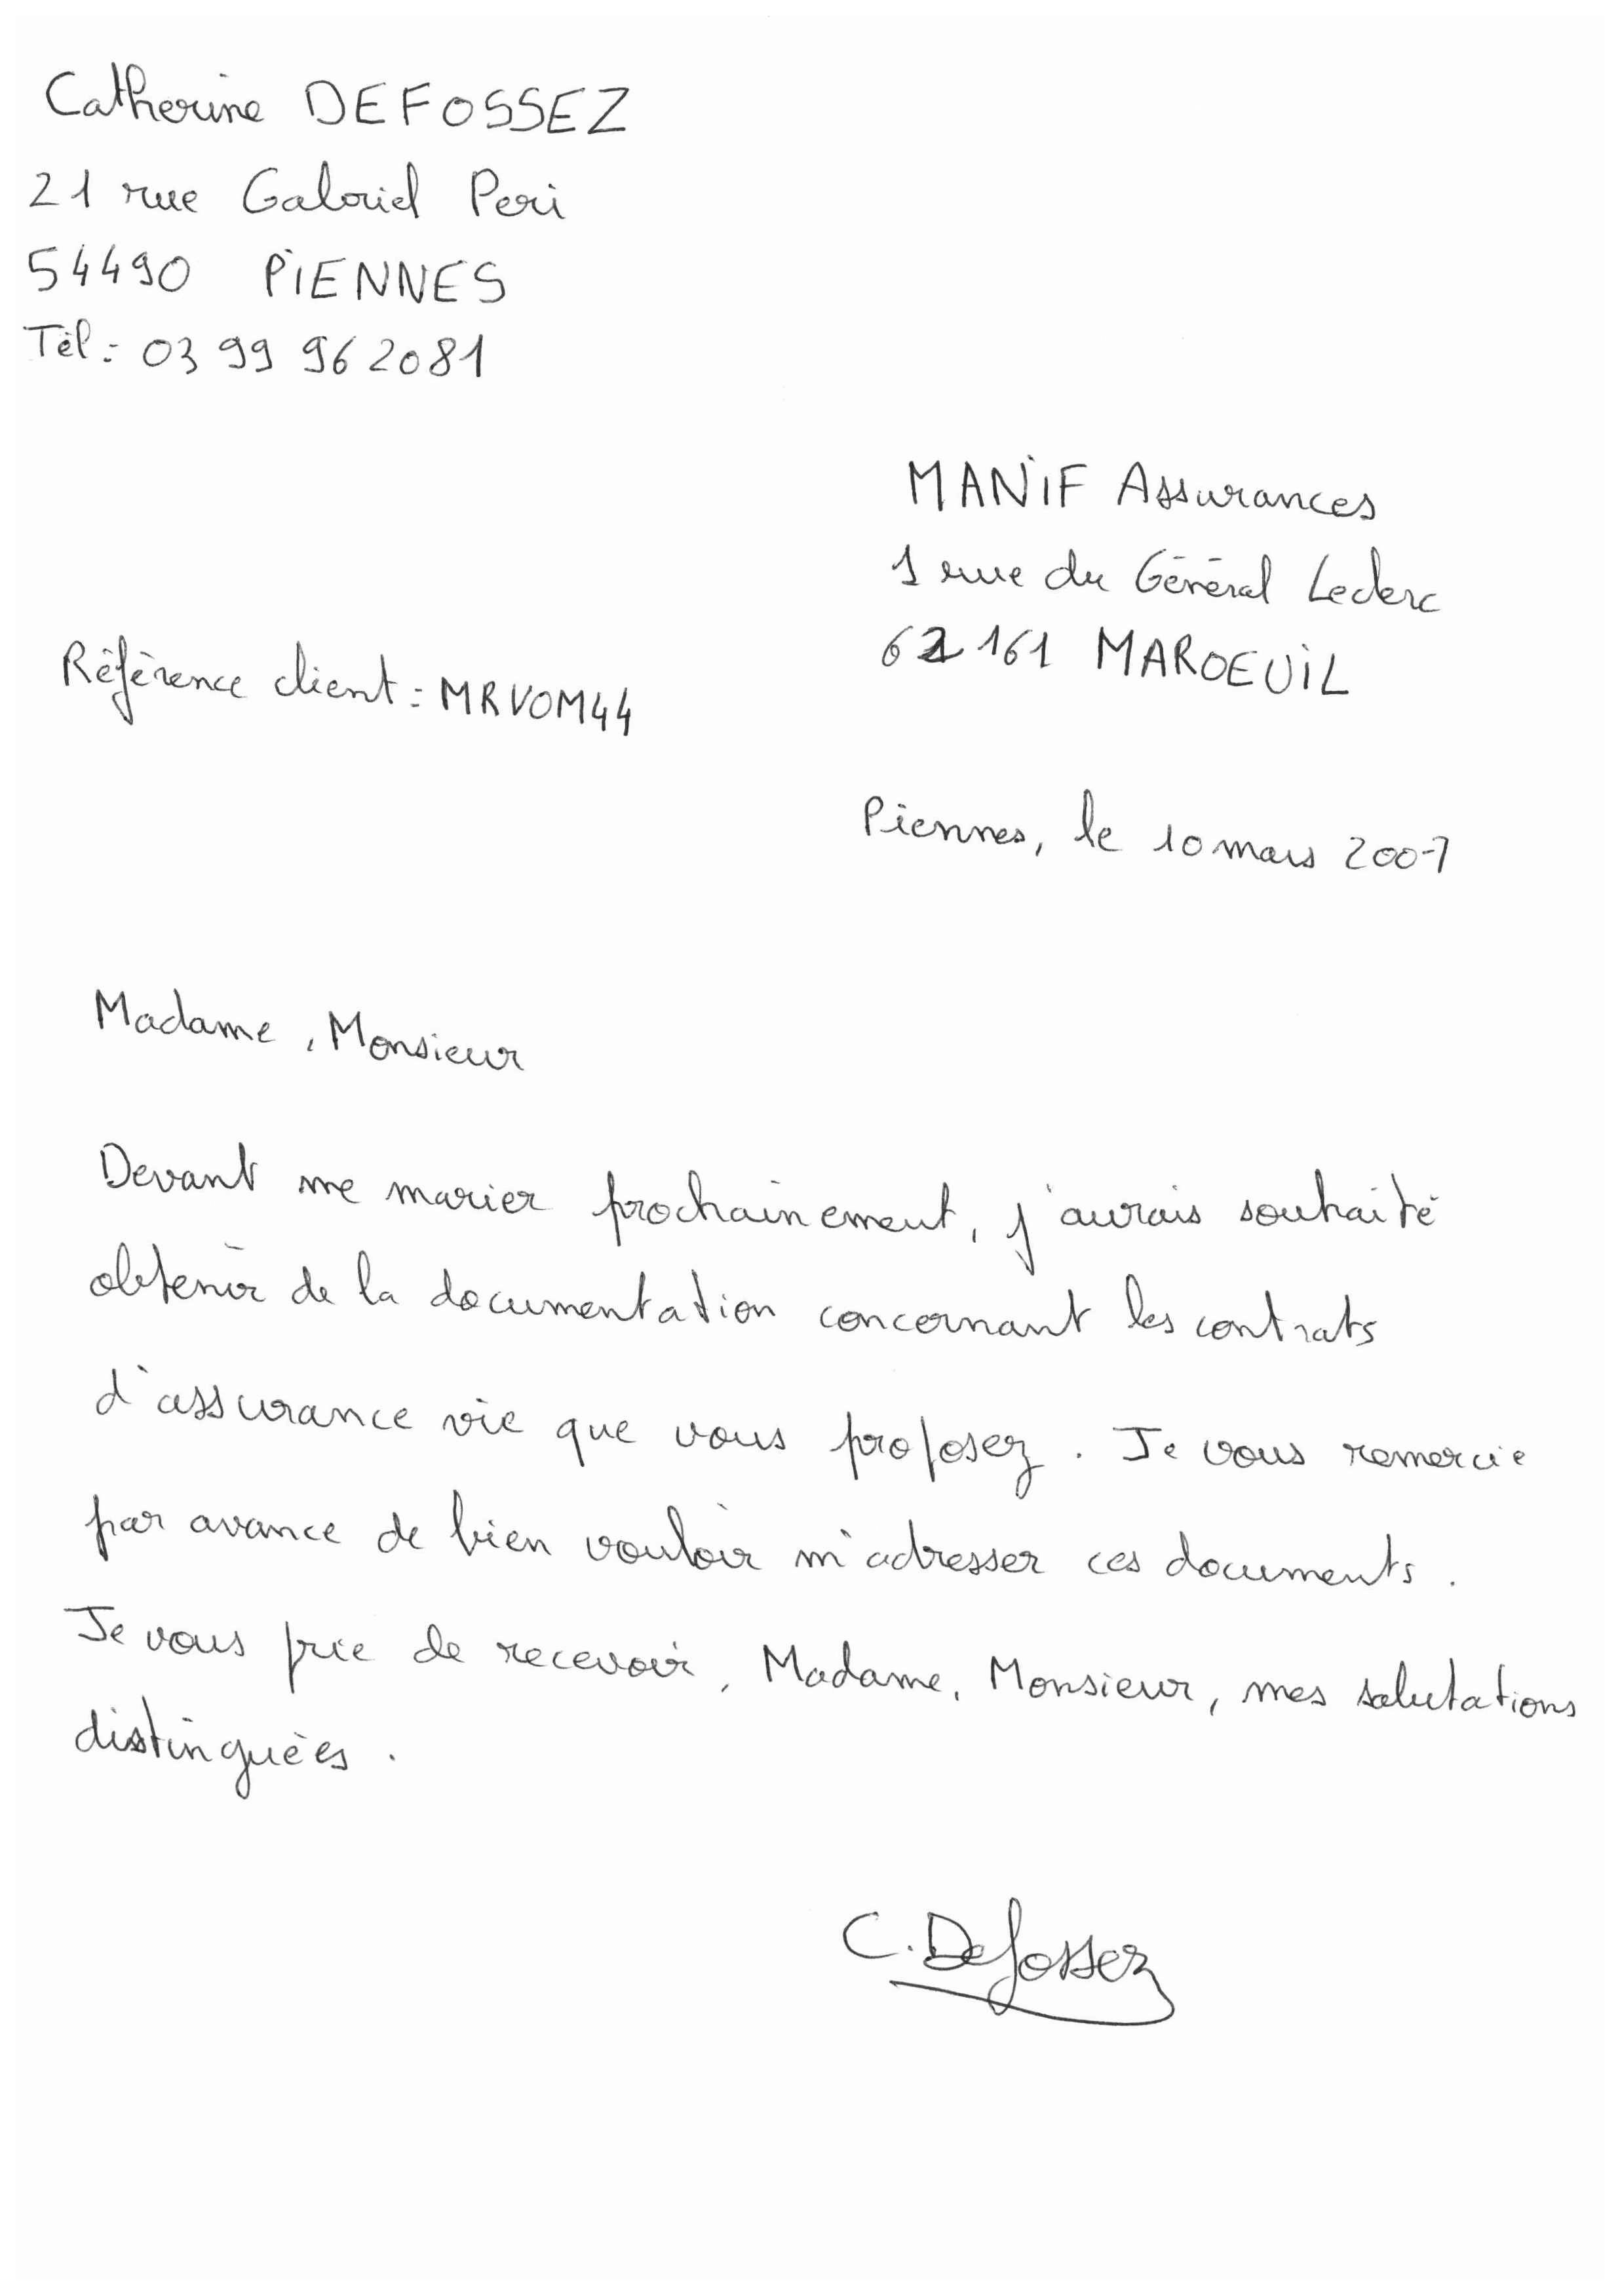 Catherine DEFOSSEZ
21 rue Gabriel Peri
54490 PIENNES
Tél : 03 99 96 20 81
MANIF Assurances
1 rue du Général Leclerc
62161 MAROEUIL
Référence client : MRVOM44
Piennes, le 10 mars 2007
Madame, Monsieur
Devant me marier prochainement, j'aurais souhaité
obtenir de la documentation concernant les contrats
d'assurance vie que vous proposez. Je vous remercie
par avance de bien vouloir m'adresser ces documents.
Je vous prie de recevoir, Madame, Monsieur, mes salutations
distinguées.
C. Defossez